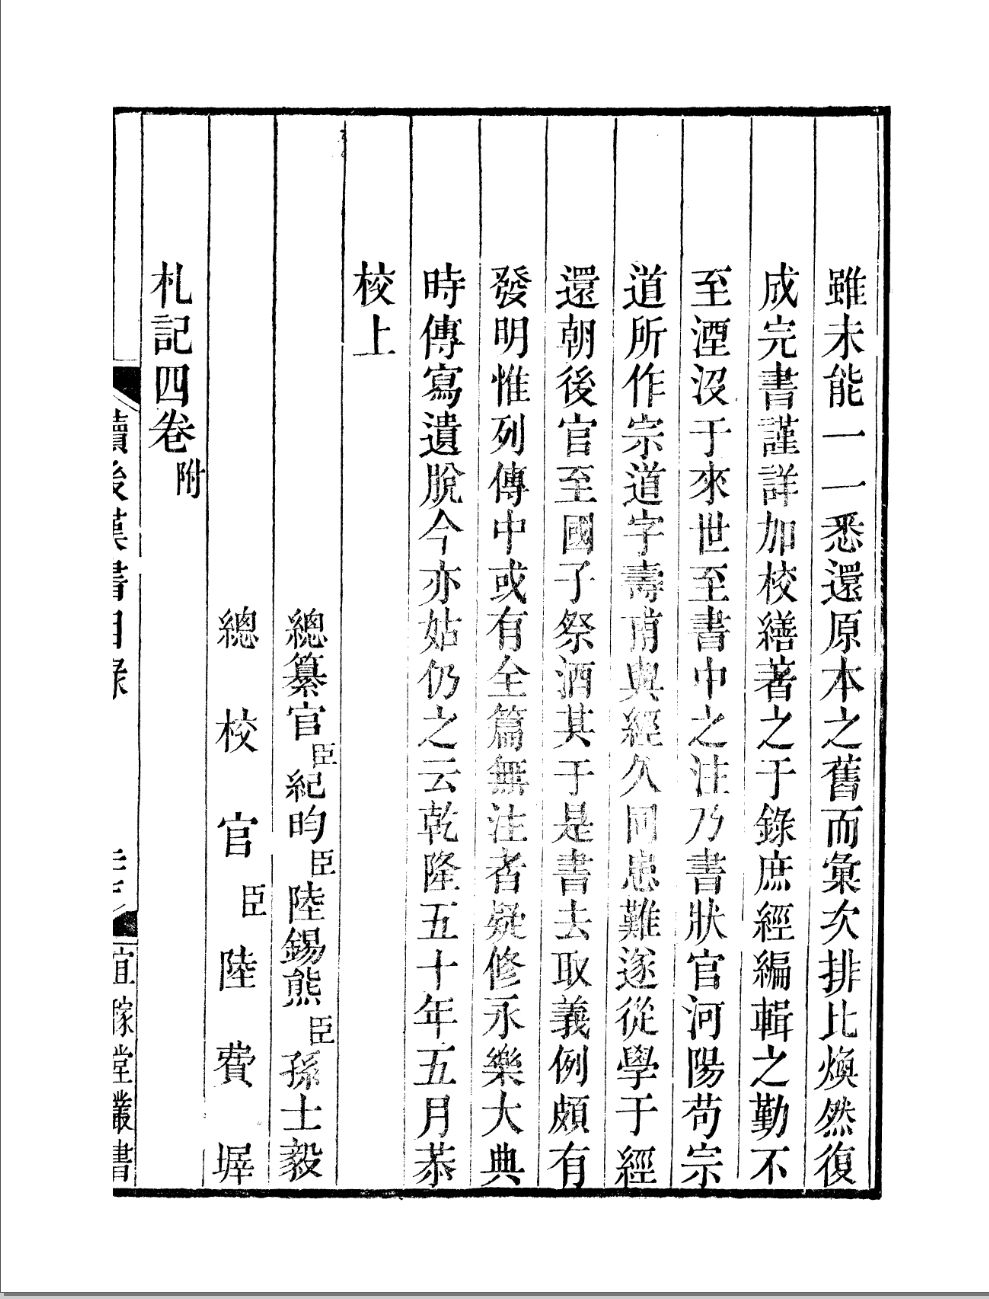 雖未能一一悉還原本之舊而彙次排比煥然復
成完書謹詳加校繕著之于錄庶經編輯之勤不
至湮沒于來世至書中之注乃書狀官河陽苟宗
道所作宗道字壽甫與經久同患難遂從學于經
還朝後官至國子祭酒其于是書去取義例頗有
發明惟列傳中或有全篇無注者疑修永樂大典
時傳寫遺脫今亦姑仍之云乾隆五十年五月恭
校上
總纂官臣紀昀臣陸錫熊臣孫士毅
總校官臣陸費墀
札記四卷附
續後漢書目錄
宜稼堂叢書